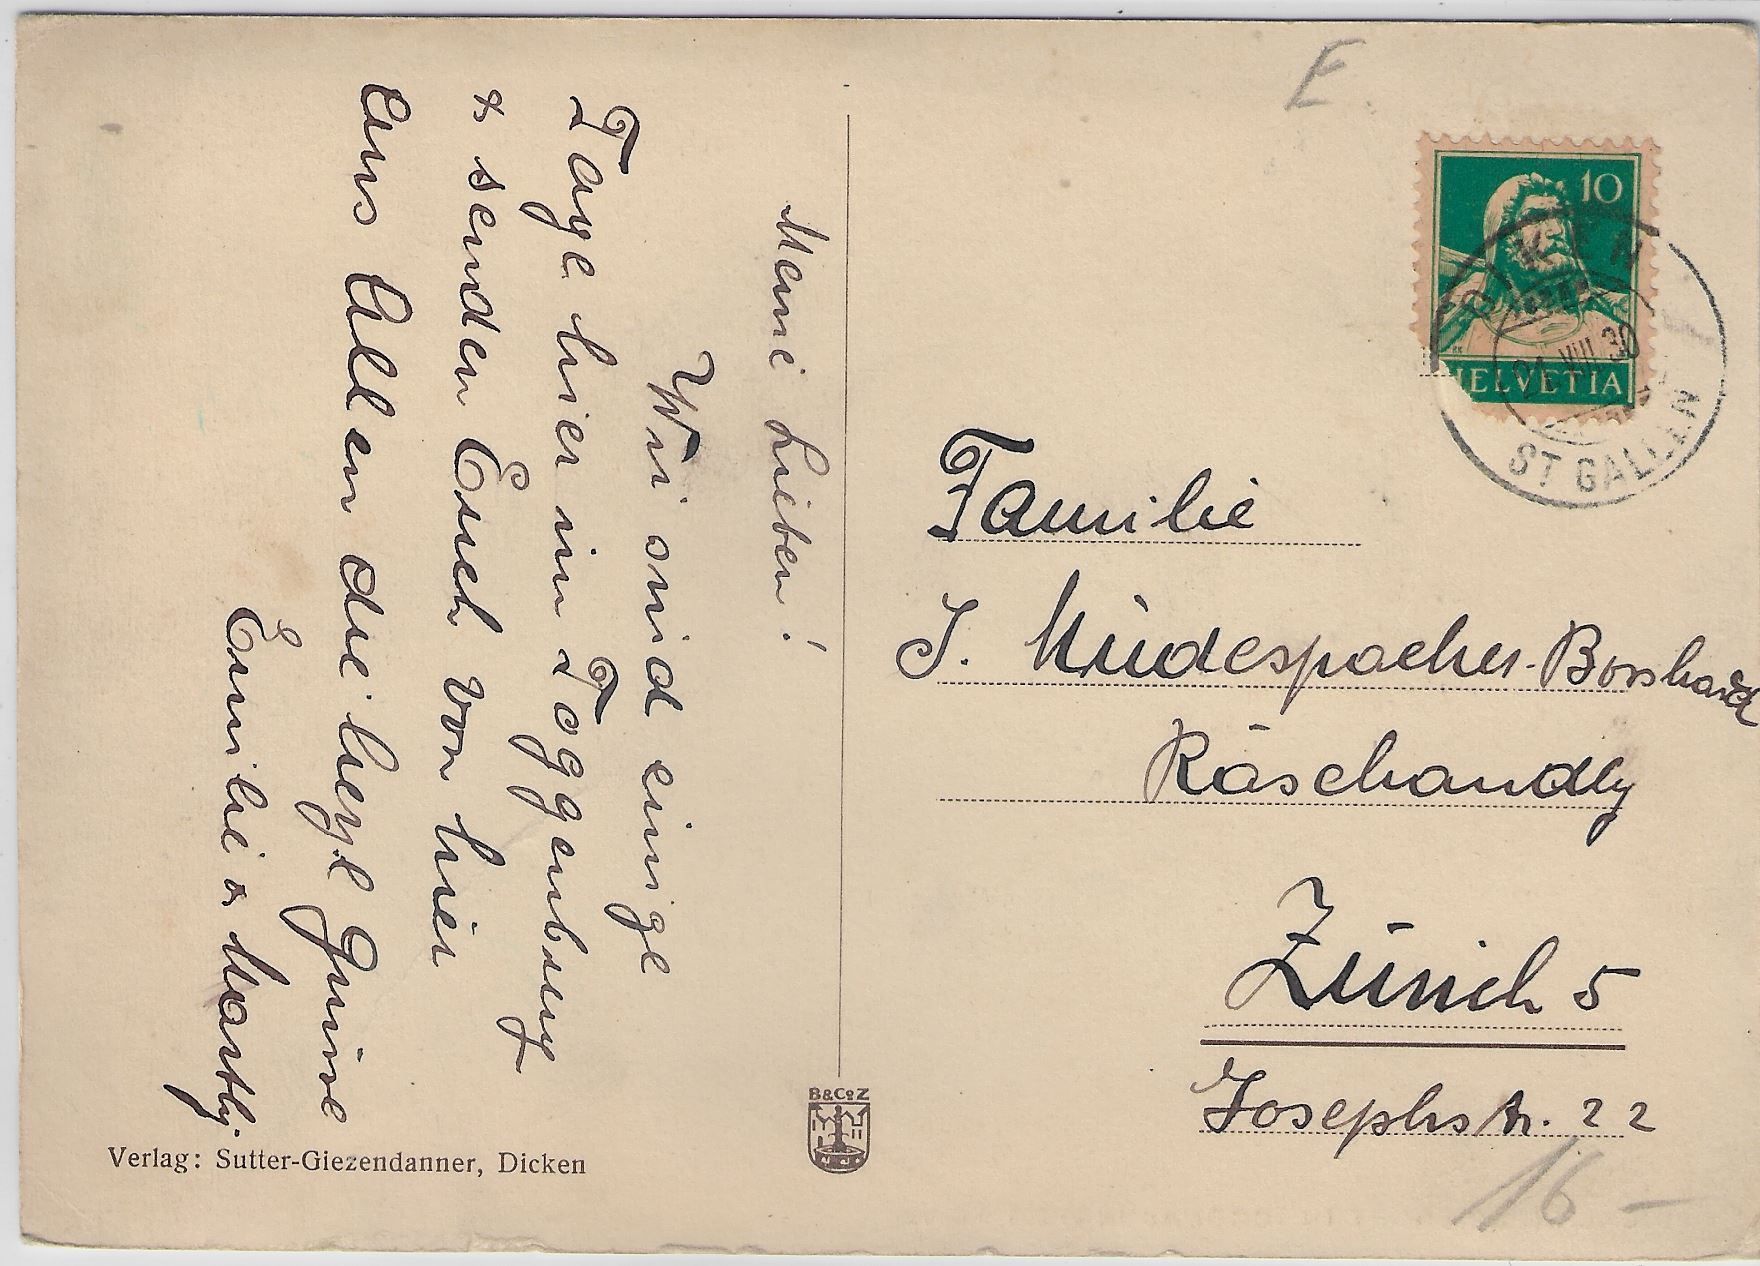 Meine Lieben!
Wir sind einige
Tage hier im Toggenburg
& senden Euch von hier
aus Allen die herzl Grüsse
Emilie & Marthy.
Verlag: Sutter-Giezendanner, Dicken
B&CoZ
E.
10
HELVETIA
DICKEN
VIII 30
ST GALLEN
Familie
J. Mindespacher-Bosshard
Käsehandlg
Zürich 5
Josephstr. 22
16 –